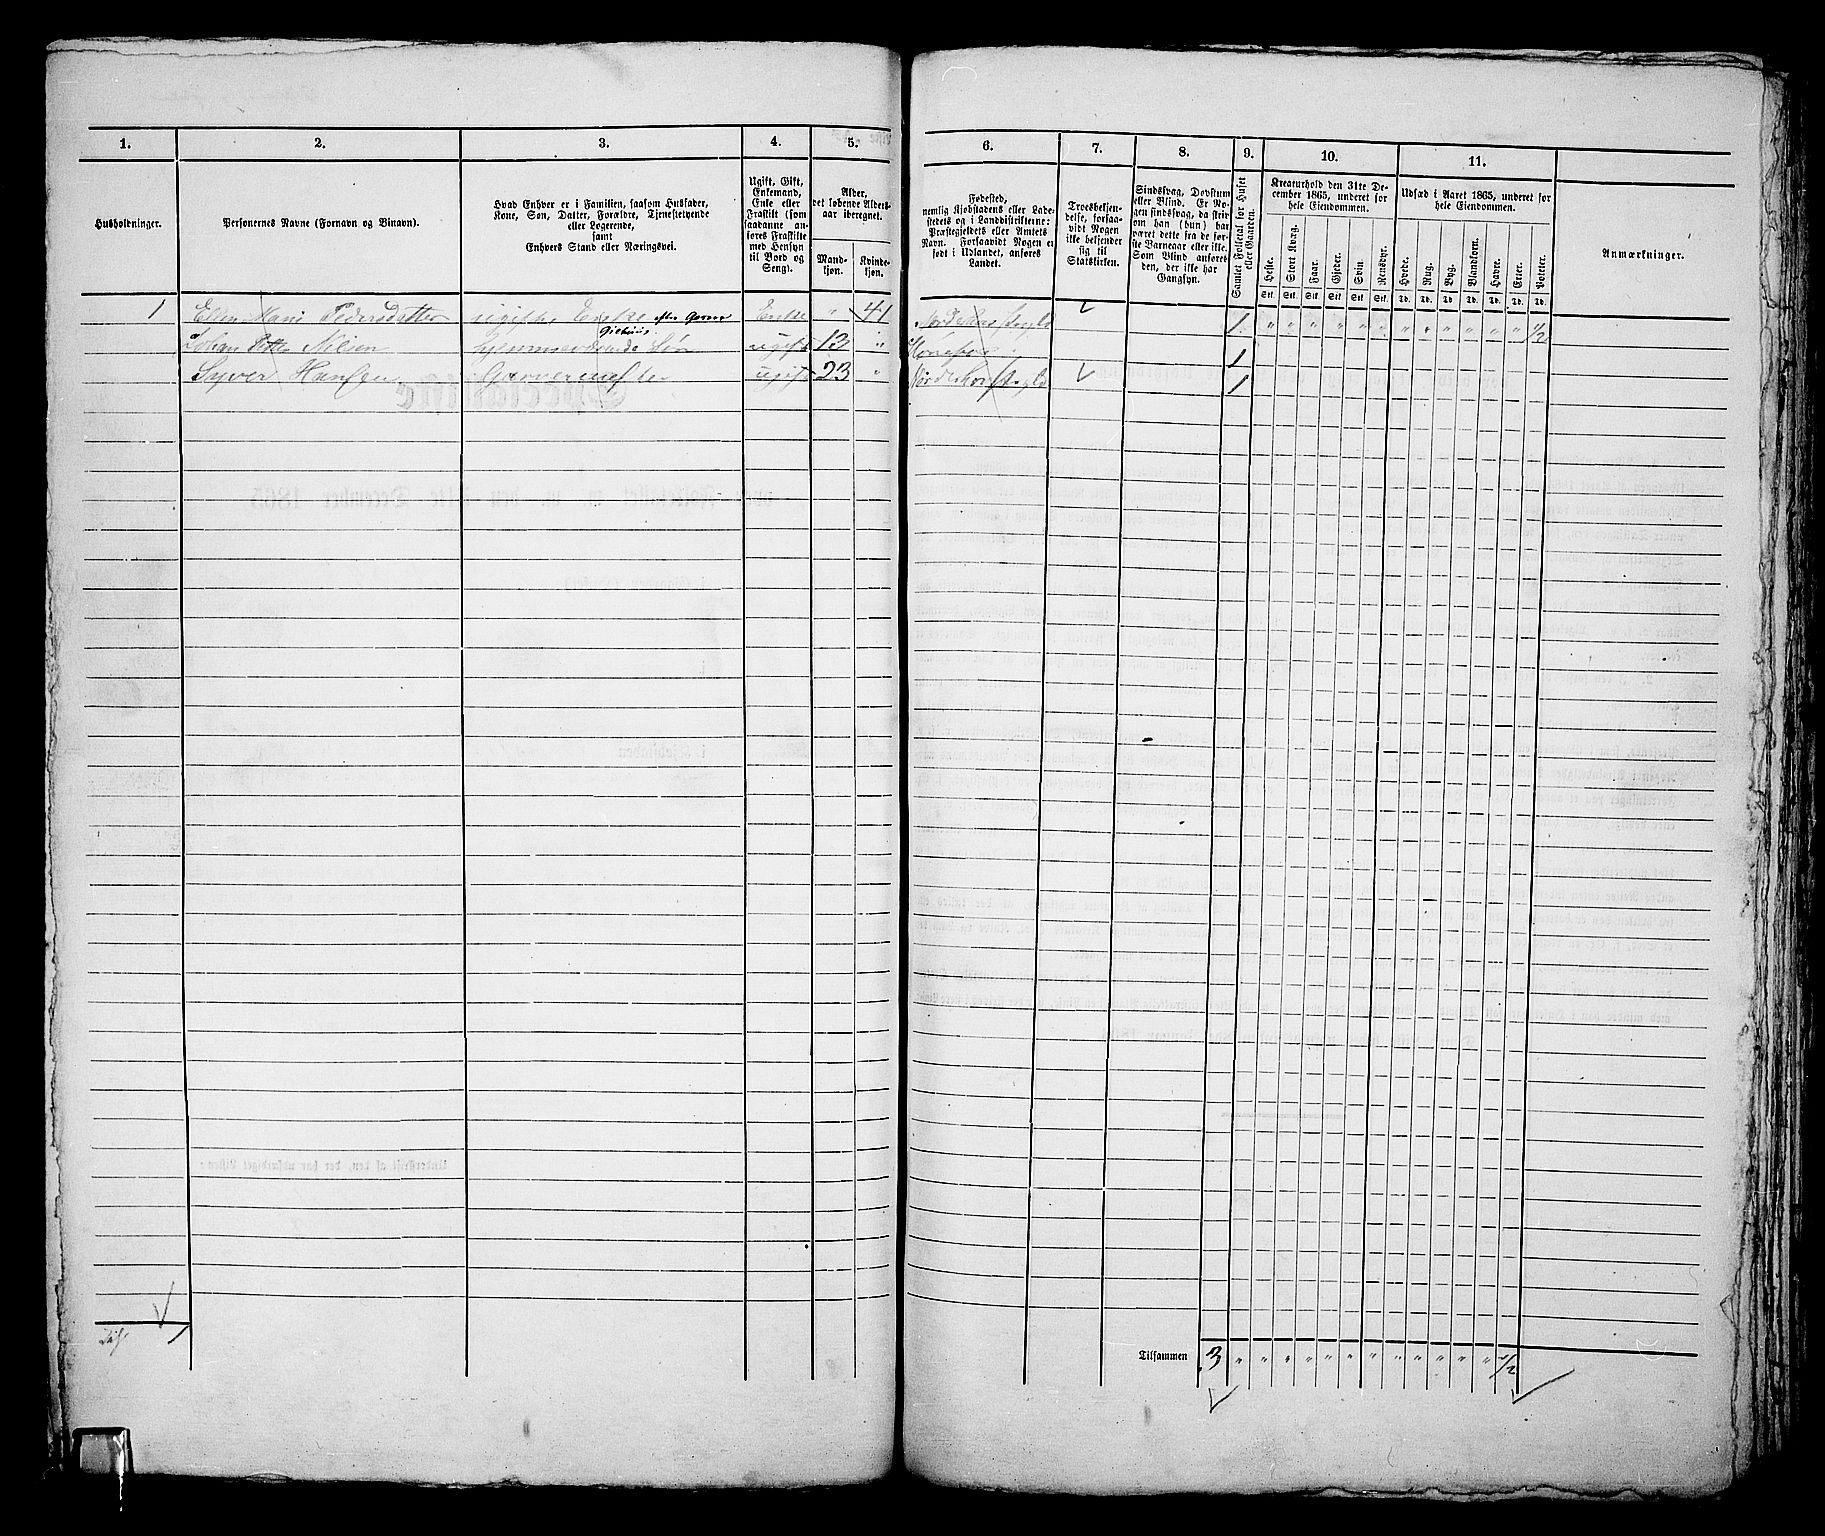 1. 2. 3. 4. 5.
Husholdninger.
Personernes Navne (Fornavn og Binavn).
Hvad Enhver er i Familien, saasom Husfader,
Kone, Søn, Datter, Forældre, Tjenestetyende
eller Logerende,
samt
Enhvers Stand eller Næringsvei.
Ugift, Gift,
Enkemand,
Enke eller
Fraskilt (som
saadanne an-
føres Fraskilte
med Hensyn
til Bord og
Seng).
Alder,
det løbende Alders-
aar iberegnet.
Mand-
kjøn.
Kvinde-
kjøn.
1 Ellen Marie Pedersdatter ugift Enke efter Garver Enke " 41
Johan Petter Nilsen hjemmeværende Søn ugift 13 "
Syver Hansen Garvermester ugift 23 "
1
6. 7. 8. 9. 10. 11.
Fødested,
nemlig Kjøbstadens eller Lade-
stedets og i Landdistrikterne:
Præstegjeldets eller Amtets
Navn. Forsaavidt Nogen er
født i Udlandet, anføres
Landet.
Troesbekjen-
delse, forsaa-
vidt Nogen
ikke bekjender
sig til
Statskirken.
Sindssvag, Døvstum
eller Blind. Er No-
gen sindssvag, da skriv
om han (hun) har
været dette fra de før-
ste Barneaar eller ikke.
Som Blind anføres
den, der ikke har
Gangsyn.
Samlet Folketal for Huset
eller Gaarden.
Kreaturhold den 31te De-
cember 1865, underet for
hele Eiendommen.
Heste. Stort Kvæg. Faar. Gjeder. Svin. Rensdyr.
Stk. Stk. Stk. Stk. Stk. Stk.
Udsæd i Aaret 1865, underet for
hele Eiendommen.
Hvede. Rug. Byg. Blandkorn. Havre. Erter. Poteter.
Td. Td. Td. Td. Td. Td. Td.
Anmærkninger.
1 " " " " " " " " " " " " 1/2
Hønefos 1
1
Tilsammen 3 " " " " " " " " " " " " 1/2